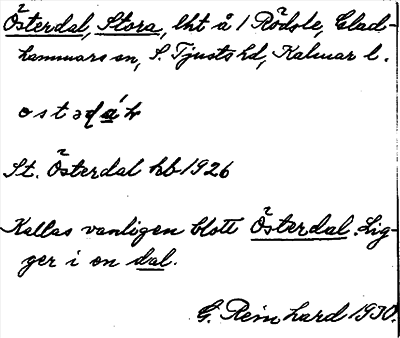 Österdal, Stora, lht å 1 Rödsle, Glad-
hammars sn, S. Tjusts hd, Kalmar l.
St. Österdal hb 1926
Kallas vanligen blott Österdal. Lig-
ger i en dal.
G. Reinhard 1930.